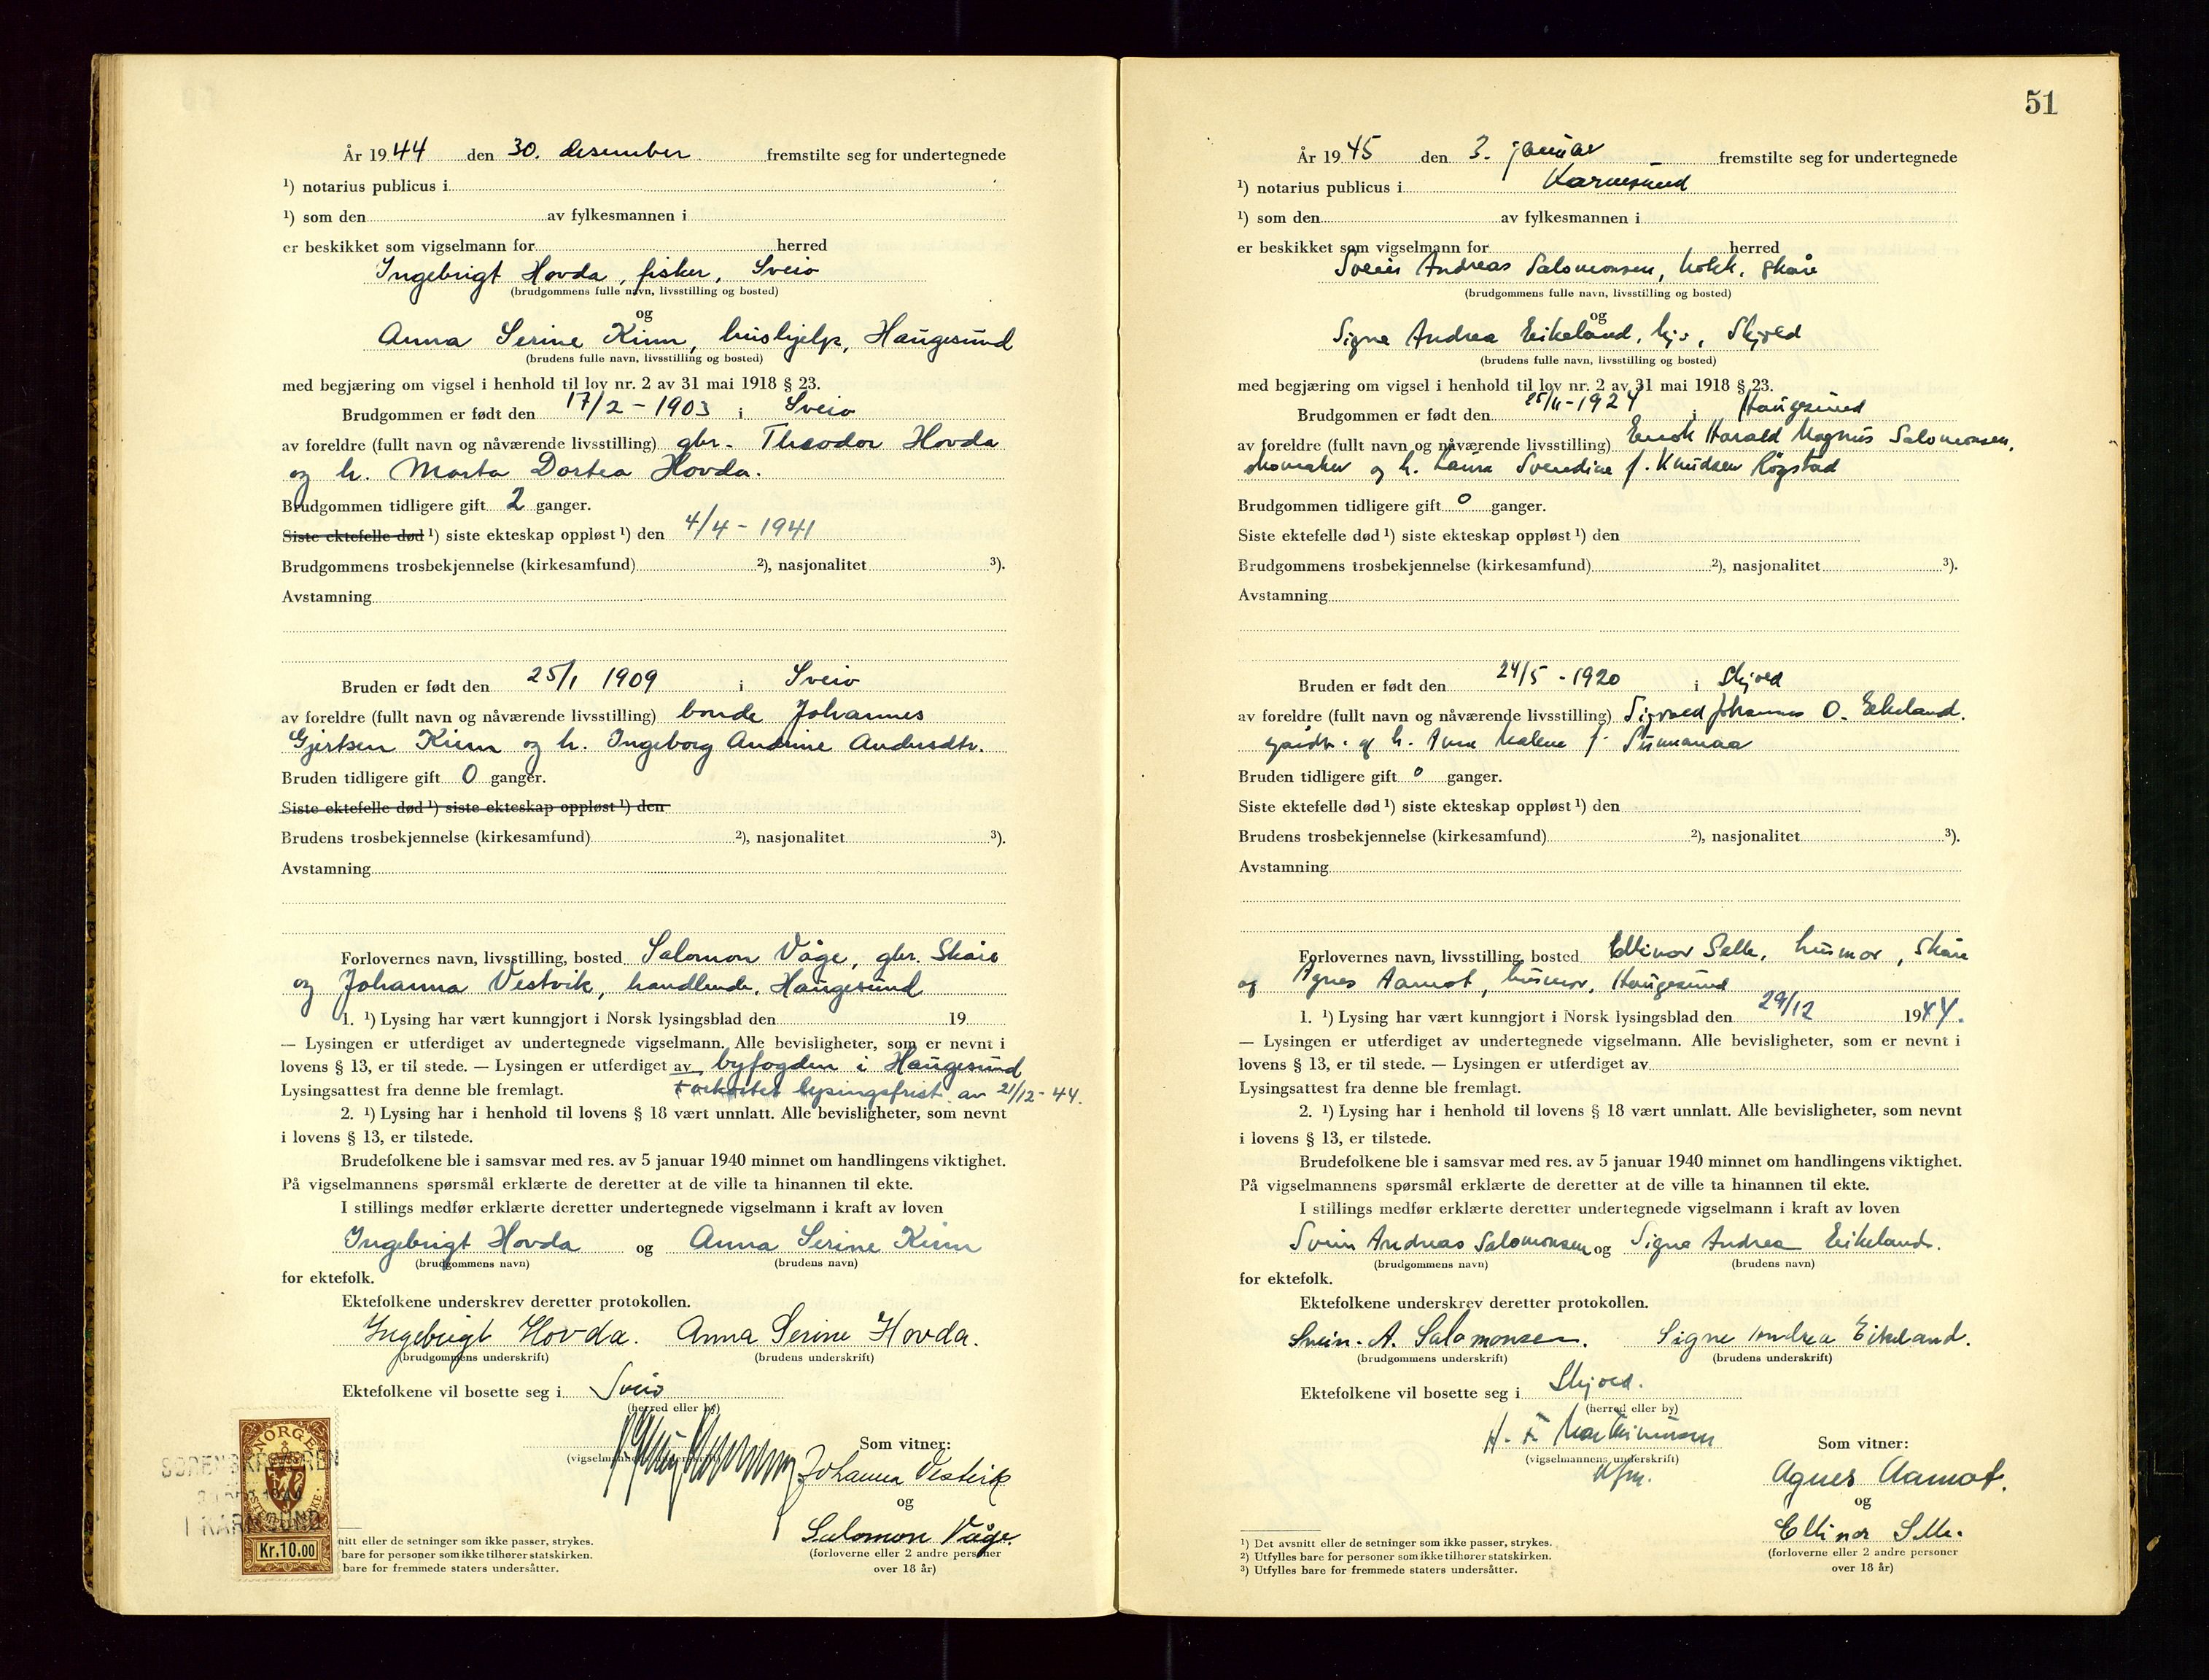 År 1944 den 30. desember fremstilte seg for undertegnede
¹) notarius publicus i
¹) som den av fylkesmannen i
er beskikket som vigselmann for herred
Ingebrigt Hovda, fisker, Sveio
(brudgommens fulle navn, livsstilling og bosted)
og
Anna Serine Kinn, hushjelp, Haugesund
(brudens fulle navn, livsstilling og bosted)
med begjæring om vigsel i henhold til lov nr. 2 av 31 mai 1918 § 23.
Brudgommen er født den 17/2 - 1903 i Sveio
av foreldre (fullt navn og nåværende livsstilling) gbr. Theodor Hovda
og h. Marta Dortea Hovda.
Brudgommen tidligere gift 2 ganger.
Siste ektefelle død ¹) siste ekteskap oppløst ¹) den 4/4 - 1941
Brudgommens trosbekjennelse (kirkesamfund) ²), nasjonalitet ³).
Avstamning
Bruden er født den 25/1 1909 i Sveio
av foreldre (fullt navn og nåværende livsstilling) bonde Johannes
Gjertsen Kinn og h. Ingeborg Andrine Andersdtr.
Bruden tidligere gift 0 ganger.
Siste ektefelle død ¹) siste ekteskap oppløst ¹) den
Brudens trosbekjennelse (kirkesamfund) ²), nasjonalitet ³).
Avstamning
Forlovernes navn, livsstilling, bosted Salomon Våge, gbr. Skåre
og Johanna Vestvik, handlende, Haugesund
1. ¹) Lysing har vært kunngjort i Norsk lysingsblad den 19
— Lysingen er utferdiget av undertegnede vigselmann. Alle bevisligheter, som er nevnt i
lovens § 13, er til stede. — Lysingen er utferdiget av byfogden i Haugesund
Lysingsattest fra denne ble fremlagt. Forkortet lysingsfrist av 21/12-44.
2. ¹) Lysing har i henhold til lovens § 18 vært unnlatt. Alle bevisligheter, som nevnt
i lovens § 13, er tilstede.
Brudefolkene ble i samsvar med res. av 5 januar 1940 minnet om handlingens viktighet.
På vigselmannens spørsmål erklærte de deretter at de ville ta hinannen til ekte.
I stillings medfør erklærte deretter undertegnede vigselmann i kraft av loven
Ingebrigt Hovda og Anna Serine Kinn
(brudgommens navn) (brudens navn)
for ektefolk.
Ektefolkene underskrev deretter protokollen.
Ingebrigt Hovda. Anna Serine Hovda.
(brudgommens underskrift) (brudens underskrift)
Ektefolkene vil bosette seg i Sveio
(herred eller by)
Som vitner:
(vigselmannens underskrift)
Johanna Vestvik
og
Salomon Våge.
(forloverne eller 2 andre personer
over 18 år)
NORGE
SORENSKRIVEREN
I KARMSUND
Kr.10.00
nitt eller de setninger som ikke passer, strykes.
bare for personer som ikke tilhører statskirken.
bare for fremmede staters undersåtter.
51
År 1945 den 3. januar fremstilte seg for undertegnede
¹) notarius publicus i Karmsund
¹) som den av fylkesmannen i
er beskikket som vigselmann for herred
Svein Andreas Salomonsen, kokk, Skåre
(brudgommens fulle navn, livsstilling og bosted)
og
Signe Andrea Eikeland, hj., Skjold
(brudens fulle navn, livsstilling og bosted)
med begjæring om vigsel i henhold til lov nr. 2 av 31 mai 1918 § 23.
Brudgommen er født den 25/11-1924 i Haugesund
av foreldre (fullt navn og nåværende livsstilling) Enok Harald Magnus Salomonsen,
skomaker og h. Laura Svendine f. Knudsen Røgstad
Brudgommen tidligere gift 0 ganger.
Siste ektefelle død ¹) siste ekteskap oppløst ¹) den
Brudgommens trosbekjennelse (kirkesamfund) ²), nasjonalitet ³).
Avstamning
Bruden er født den 24/5 - 1920 i Skjold
av foreldre (fullt navn og nåværende livsstilling) Sigvald Johannes O. Eikeland.
gårdbr. og h. Anna Malene f. Sunnanaa
Bruden tidligere gift 0 ganger.
Siste ektefelle død ¹) siste ekteskap oppløst ¹) den
Brudens trosbekjennelse (kirkesamfund) ²), nasjonalitet ³).
Avstamning
Forlovernes navn, livsstilling, bosted Ellinor Selle, husmor, Skåre
og Agnes Aamot, husmor, Haugesund
1. ¹) Lysing har vært kunngjort i Norsk lysingsblad den 29/12 1944.
— Lysingen er utferdiget av undertegnede vigselmann. Alle bevisligheter, som er nevnt i
lovens § 13, er til stede. — Lysingen er utferdiget av
Lysingsattest fra denne ble fremlagt.
2. ¹) Lysing har i henhold til lovens § 18 vært unnlatt. Alle bevisligheter, som nevnt
i lovens § 13, er tilstede.
Brudefolkene ble i samsvar med res. av 5 januar 1940 minnet om handlingens viktighet.
På vigselmannens spørsmål erklærte de deretter at de ville ta hinannen til ekte.
I stillings medfør erklærte deretter undertegnede vigselmann i kraft av loven
Svein Andreas Salomonsen og Signe Andrea Eikeland.
(brudgommens navn) (brudens navn)
for ektefolk.
Ektefolkene underskrev deretter protokollen.
Svein. A. Salomonsen. Signe Andrea Eikeland.
(brudgommens underskrift) (brudens underskrift)
Ektefolkene vil bosette seg i Skjold.
(herred eller by)
Som vitner:
(vigselmannens underskrift)
Agnes Aamot.
og
Ellinor Selle.
(forloverne eller 2 andre personer
over 18 år)
¹) Det avsnitt eller de setninger som ikke passer, strykes.
²) Utfylles bare for personer som ikke tilhører statskirken.
³) Utfylles bare for fremmede staters undersåtter.